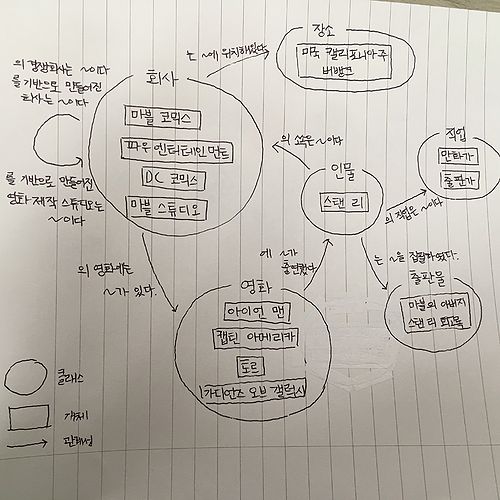 장소
는 ~에 위치해있다.
미국 캘리포니아주
버뱅크
의 경쟁회사는 ~이다
를 기반으로 만들어진
회사는 ~이다
회사
마블 코믹스
파운 엔터테인먼트
DC 코믹스
마블 스튜디오
를 기반으로 만들어진
영화 제작 스튜디오는
~이다
의 소속은 ~이다
직업
만화가
출판가
인물
스탠 리
의 직업은 ~이다.
는 ~을 집필하였다.
출판물
마블의 아버지
스탠 리 회고록
의 영화에는
~가 있다.
에 ~가
출연했다
영화
아이언 맨
캡틴 아메리카
토르
가디언즈 오브 갤럭시
클래스
객체
관계성